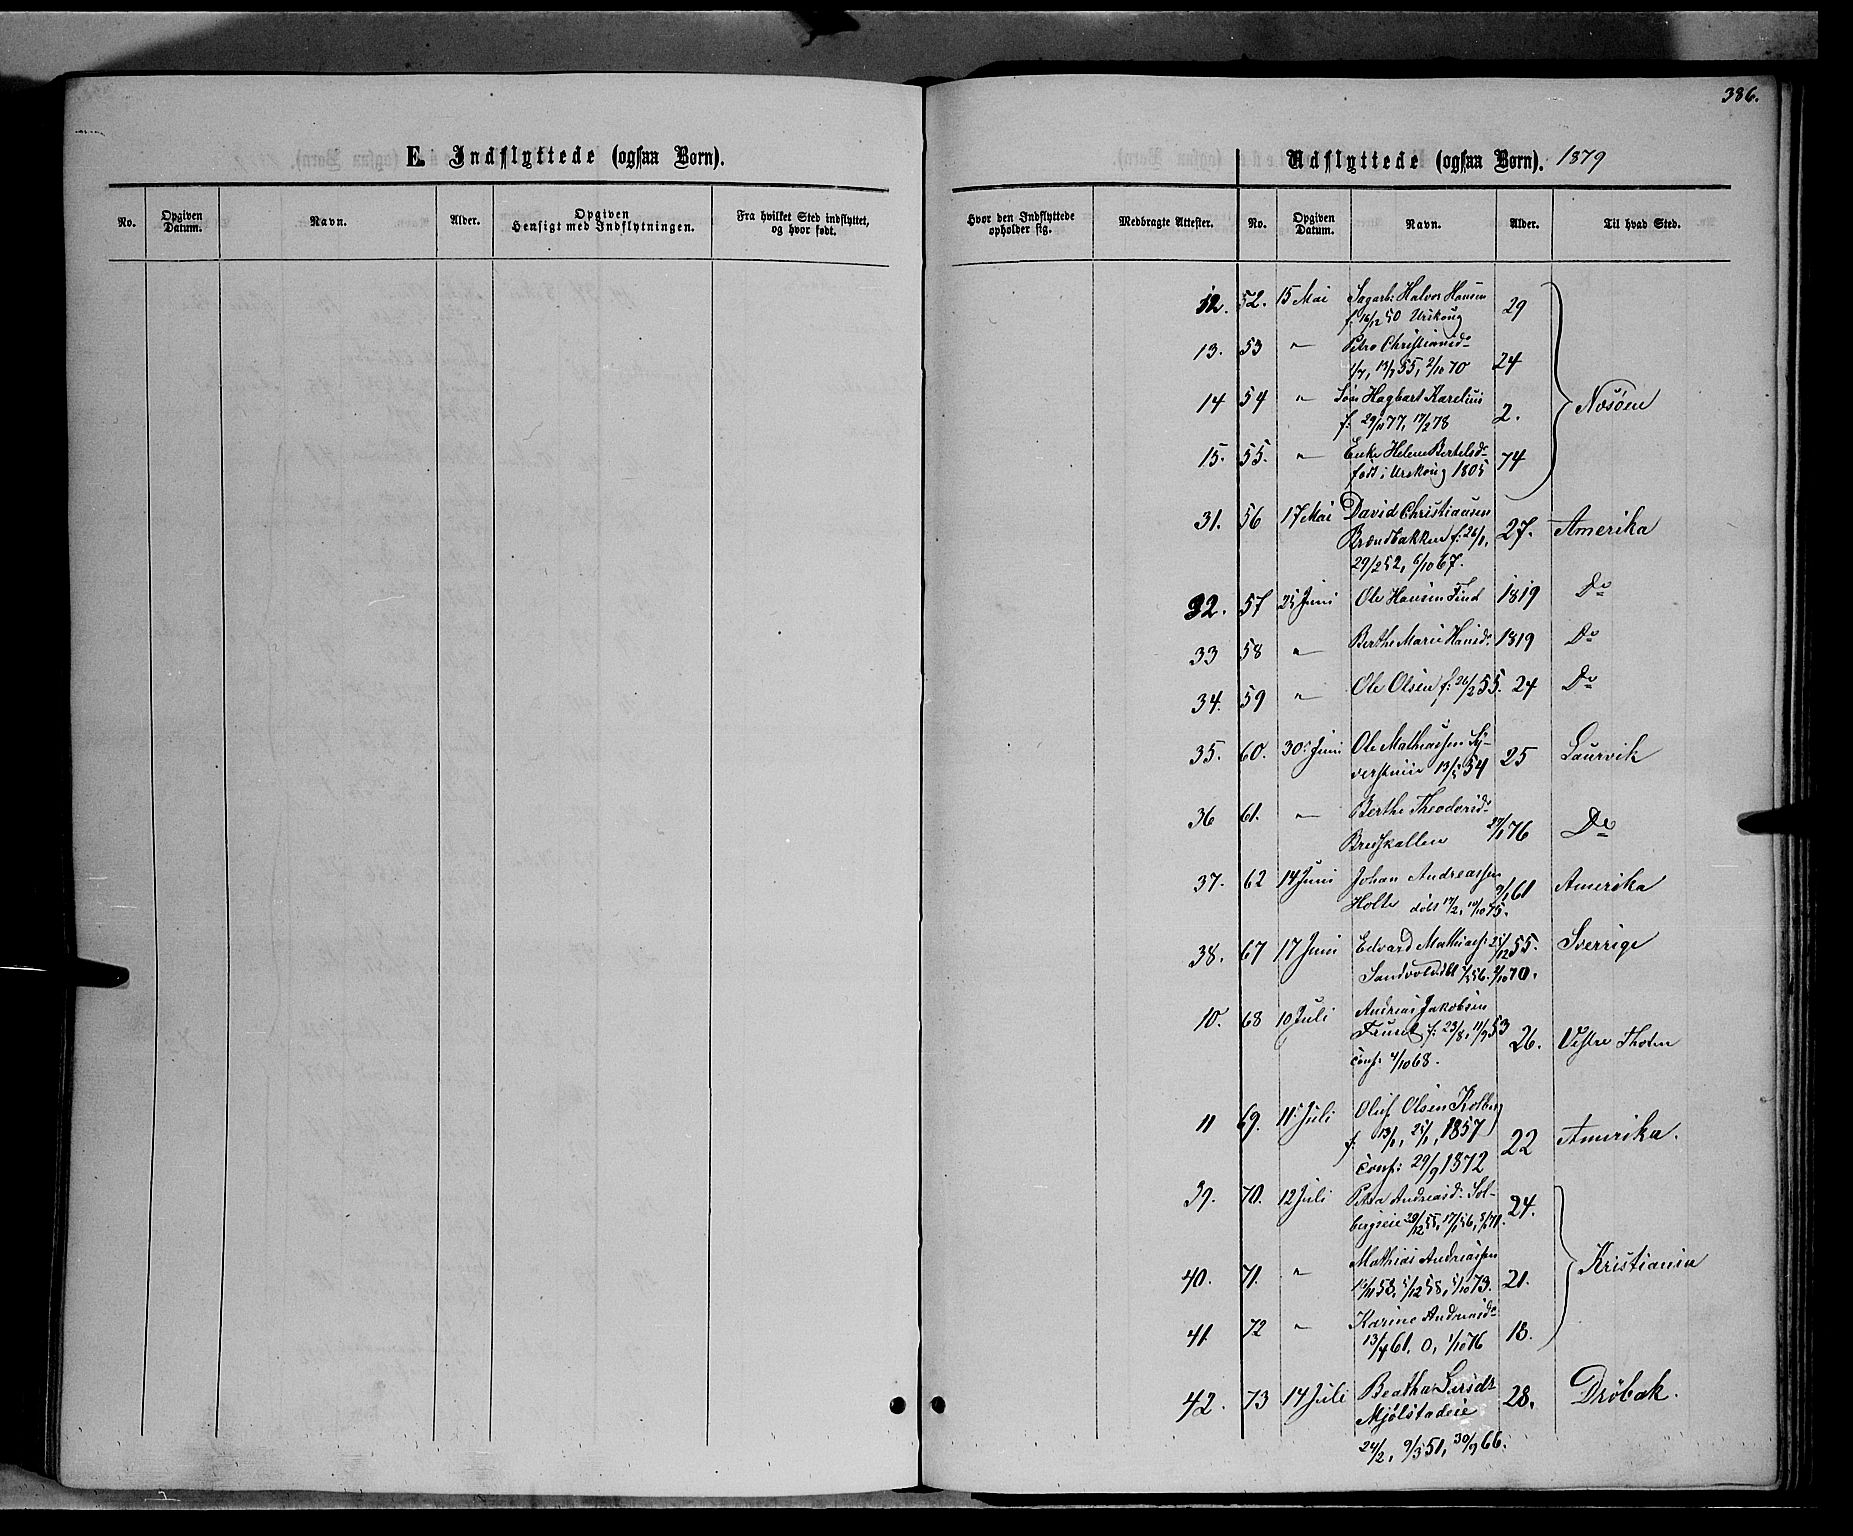 386.
E. Indflyttede (ogsaa Børn).
No. Opgiven Datum. Navn. Alder. Opgiven Hensigt med Indflytningen. Fra hvilket Sted indflyttet, og hvor født.
Udflyttede (ogsaa Børn). 1879
Hvor den Indflyttede opholder sig. Medbragte Attester. No. Opgiven Datum. Navn. Alder. Til hvad Sted.
12. 52. 15 Mai Sagarb: Halvor Hansen 29
f: 16/2 50 Urskoug
13. 53 " Petra Christiansdr
13/5 55, 2/10 70 24
14 54 " Søn Hagbart Karelius
f: 29/11 77, 17/2 78 2.
Næsøen
15. 55. " Enke Helene Bertelsdr
født i Urskoug 1805 74
31. 56 17 Mai David Christiansen
Brændbakken f: 26/1, 27. Amerika
29/2 52, 6/10 67.
32. 57 25 Juni Ole Hansen Tind 1819 Do
33 58 " Berthe Marie Hansdr. 1819 Do
34. 59 " Ole Olsen f: 26/2 55. 24 Do
35. 60. 30 Juni Ole Mathiassen Sy-
verstuen 13/5 54 25 Laurvik
36 61. " Berthe Theodorsdr
Breskallen 27/1 76 Do
37. 62 14 Juni Johan Andreassen
Holte døbt 17/2, 10/10 75. 9/1 61 Amerika
38. 67 17 Juni Edvard Mathias: 25/12 55. Sverrige
Sandvold dbt 1/5 56. 2/10 70.
10. 68 10 Juli Andreas Jakobsen
f: 23/8, 11/9 53 26. Vestre Thoten
conf: 4/10 68.
11 69. 11 Juli Oluf Olsen Kolberg
f: 13/1, 25/1, 1857 22 Amerika.
conf: 29/9 1872
39. 70. 12 Juli Petra Andreasdr Sol-
bergseie 20/12 55, 17/1 56, 24.
40. 71. " Mathias Andreassen
58, 5/12 58, 5/10 73. 21.
Kristiania
41. 72 " Karine Andreasdr
13/4 61, 0, 1/10 76 18.
42. 73 14 Juli Beatha Larsdr
Mjølstadeie 28. Drøbak.
24/2, 9/3 51, 30/9 66.